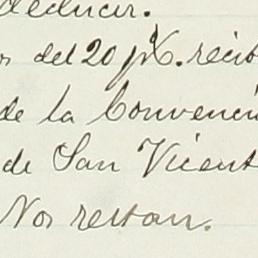 deducir.
del 20 p%. recib
de la Convenci
de San Vicent
Nos restan.